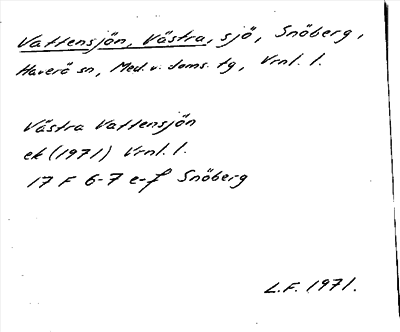 Vattensjön, Västra, sjö, Snöberg,
Haverö sn, Med.v. doms. tg, Vrnl. l.
Västra Vattensjön
ek (1971) Vrnl. l.
17 F 6-7 e-f Snöberg
L.F. 1971.